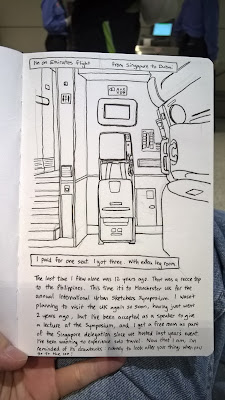 I'm on Emirates flight
from Singapore to Dubai
I paid for one seat. I got three. With extra leg room
The last time I flew alone was 12 years ago. That was a recce trip
to the Philippines. This time it's to Manchester UK for the
annual International Urban Sketchers Symposium. I wasn't
planning to visit the UK again so soon, having just went
2 years ago, but I've been accepted as a speaker to give
a lecture at the Symposium, and I get a free room as part
of the Singapore delegation since we hosted last year's event.
I've been wanting to experience solo travel. Now that I am, I'm
reminded of its drawbacks. nobody to look after your thing when you
go to the